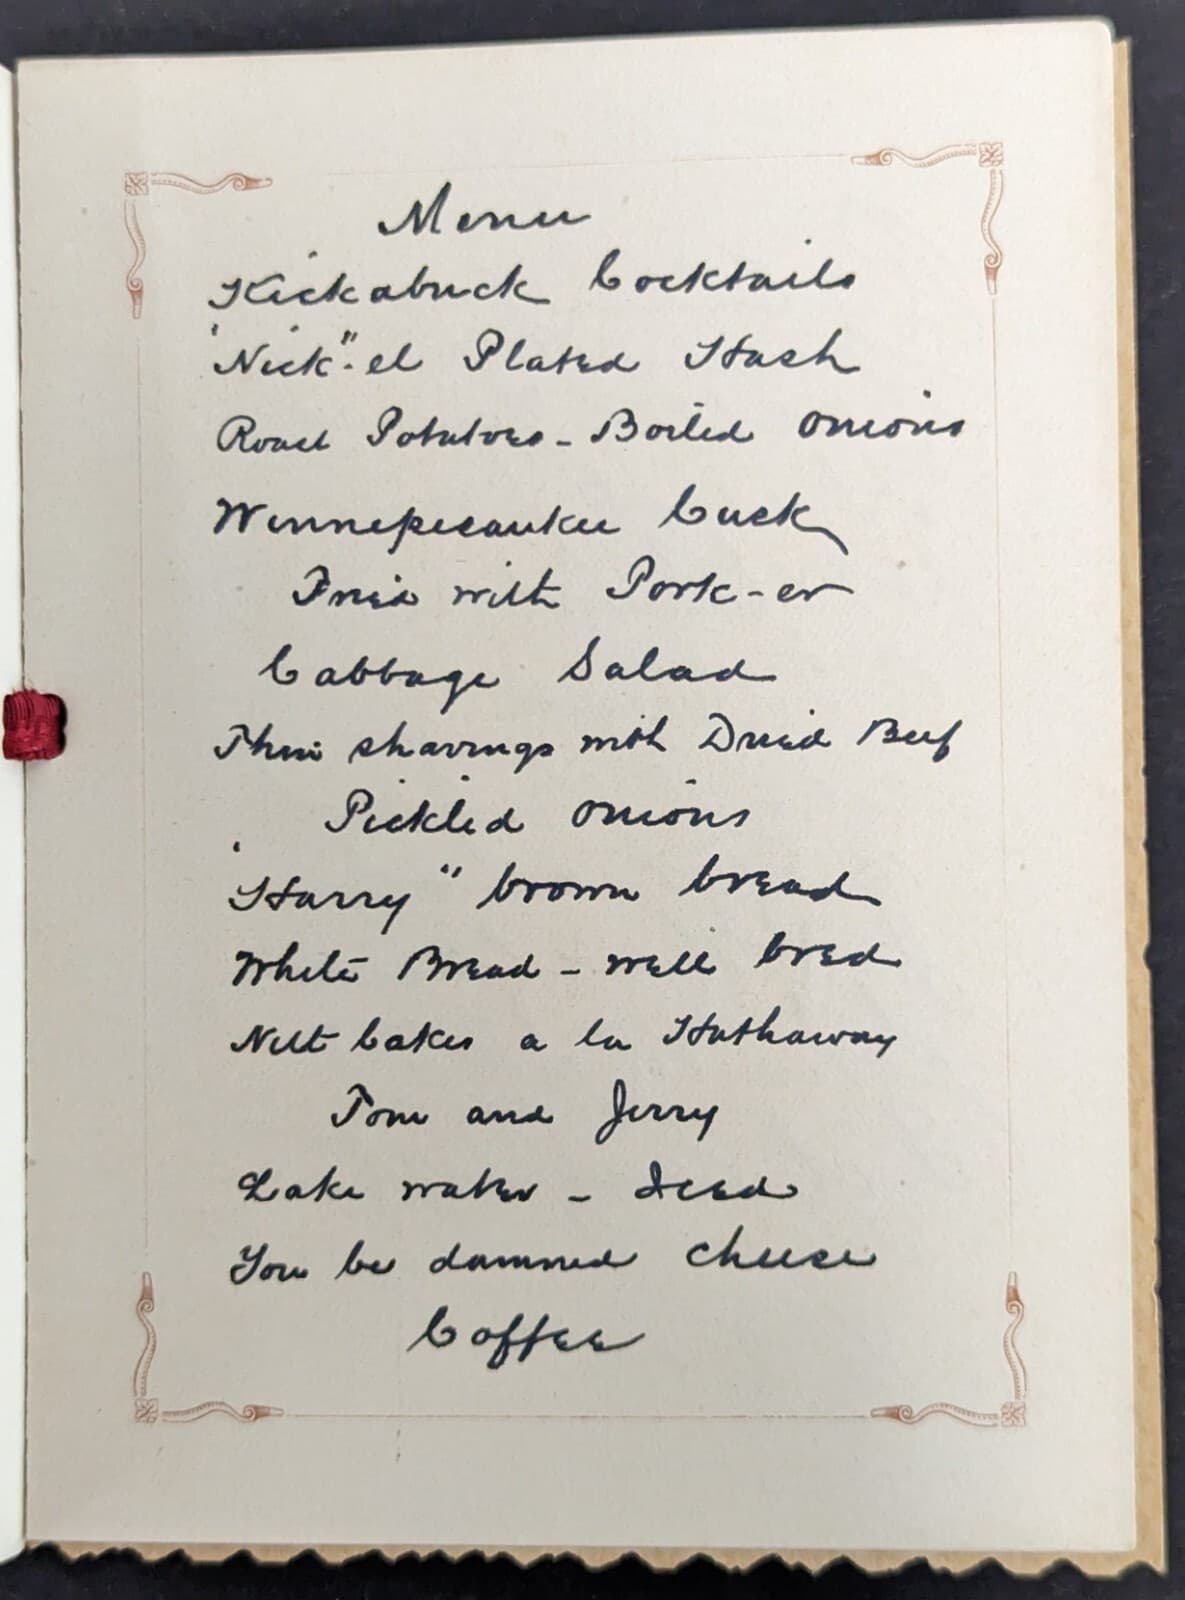 Menu
Kickabuck Cocktails
"Nick"-el Plated Hash
Roast Potatoes - Boiled Onions
Winnepesaukee Cusk
Fried with Pork-er
Cabbage Salad
Thin shavings with Dried Beef
Pickled Onions
"Harry" brown bread
White Bread - well bred
Cakes a la Hathaway
Tom and Jerry
Lake water - Iced
You be damned cheese
Coffee